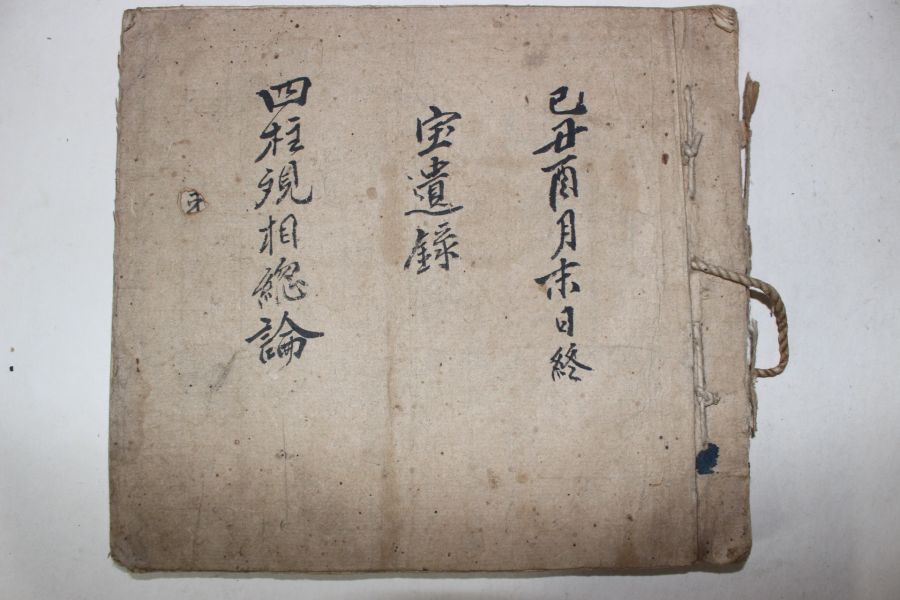 己丑酉月末日終
宝遺錄
四柱現相総論